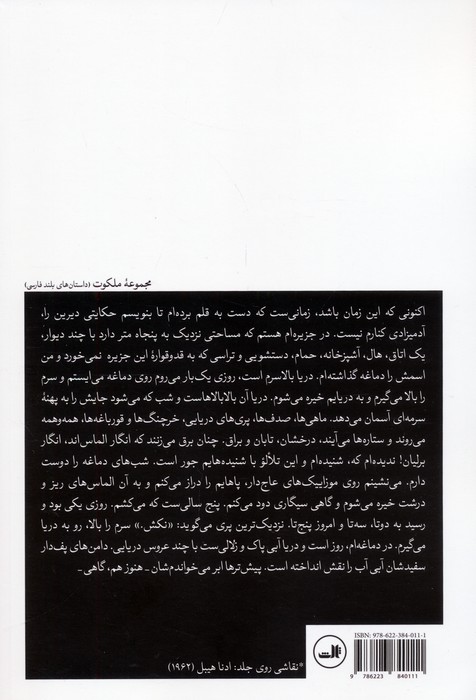 مجموعهٔ ملکوت (داستان‌های بلند فارسی)
اکنونی که این زمان باشد، زمانی‌ست که دست به قلم برده‌ام تا بنویسم حکایتی دیرین را،
آدمیزادی کنارم نیست. در جزیره‌ام هستم که مساحتی نزدیک به پنجاه متر دارد با چند دیوار،
یک اتاق، هال، آشپزخانه، حمام، دستشویی و تراسی که به قدوقوارهٔ این جزیره نمی‌خورد و من
اسمش را دماغه گذاشته‌ام. دریا بالاسرم است، روزی یک‌بار می‌روم روی دماغه می‌ایستم و سرم
را بالا می‌گیرم و به دریایم خیره می‌شوم. دریا آن بالابالاهاست و شب که می‌شود جایش را به پهنهٔ
سرمه‌ای آسمان می‌دهد. ماهی‌ها، صدف‌ها، پری‌های دریایی، خرچنگ‌ها و قورباغه‌ها، همه‌وهمه
می‌روند و ستاره‌ها می‌آیند، درخشان، تابان و براق. چنان برق می‌زنند که انگار الماس‌اند، انگار
برلیان! ندیده‌ام که، شنیده‌ام و این تلألؤ با شنیده‌هایم جور است. شب‌های دماغه را دوست
دارم. می‌نشینم روی موزاییک‌های عاج‌دار، پاهایم را دراز می‌کنم و به آن الماس‌های ریز و
درشت خیره می‌شوم و گاهی سیگاری دود می‌کنم. پنج سالی‌ست که می‌کشم. روزی یکی بود و
رسید به دوتا، سه‌تا و امروز پنج‌تا. نزدیک‌ترین پری می‌گوید: «نکش.» سرم را بالا، رو به دریا
می‌گیرم. در دماغه‌ام، روز است و دریا آبی پاک و زلالی‌ست با چند عروس دریایی. دامن‌های پف‌دار
سفیدشان آبی آب را نقش انداخته است. پیش‌ترها ابر می‌خواندم‌شان ـ هنوز هم، گاهی ـ
ISBN: 978-622-384-011-1
9 786223 840111
ثالث
*نقاشی روی جلد: ادنا هیبل (۱۹۶۲)